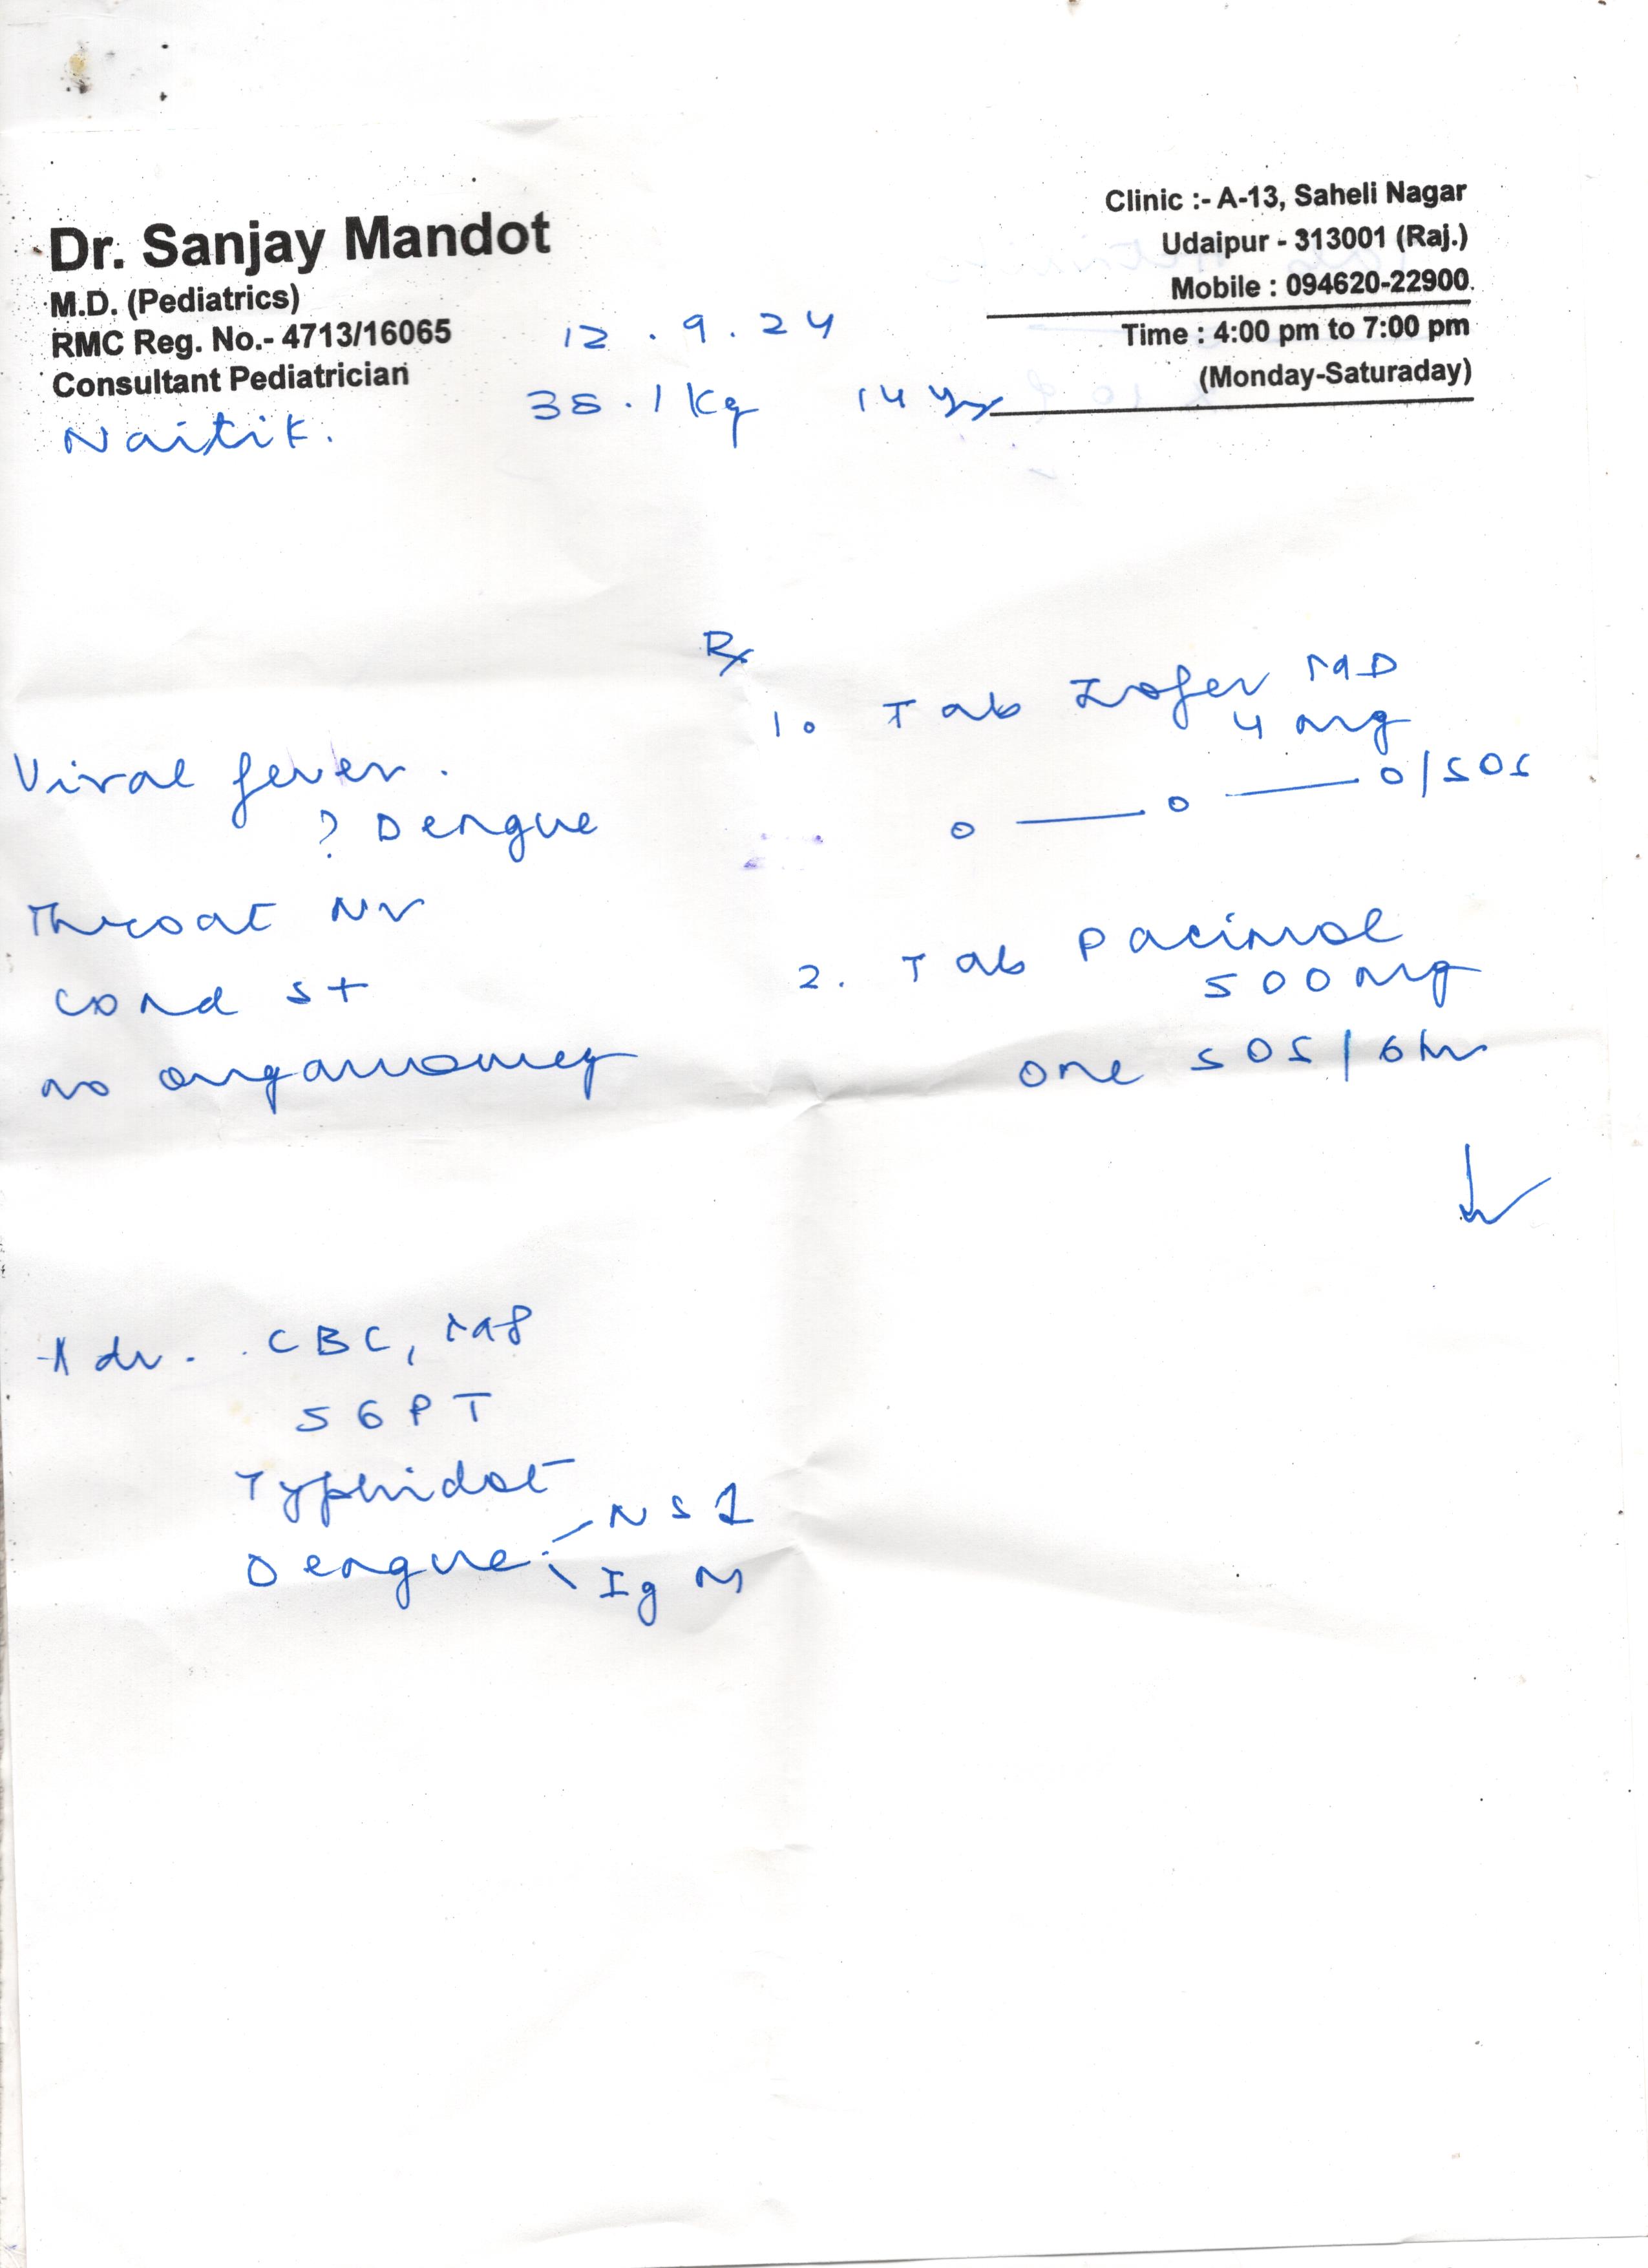 Dr. Sanjay Mandot
M.D. (Pediatrics)
RMC Reg. No.- 4713/16065
Consultant Pediatrician
Clinic :- A-13, Saheli Nagar
Udaipur - 313001 (Raj.)
Mobile : 094620-22900.
Time : 4:00 pm to 7:00 pm
(Monday-Saturaday)
12 . 9 . 24
Naitik. 38.1 Kg 14 yrs
Viral fever.
? Dengue
Throat
Cond st
no
Adv. CBC,
SGPT
Typhidot
Dengue NS1
IgM
Rx
1. Tab Zofer MD
4 mg
o — o — o/SOS
2. Tab Pacimol
500 mg
one SOS/6hr